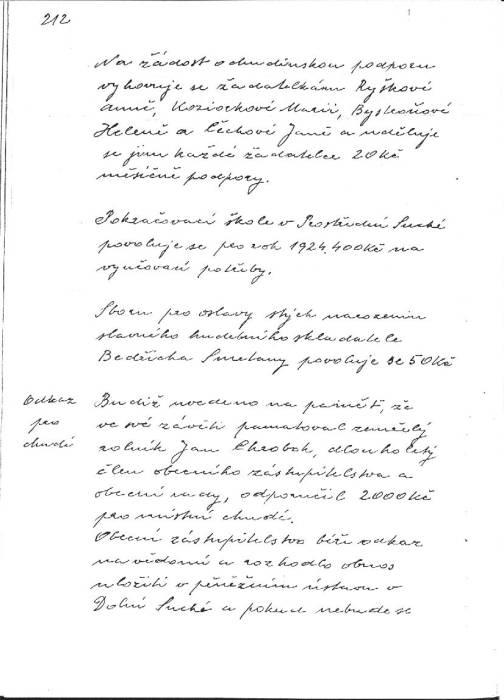 212
Na žádost o chudinskou podporu
vyhovuje se žadatelkám Ryškové
Anně, Koziorkové Marii, Byskoňové
Heleně a Čechové Janě a uděluje
se jim každé žadatelce 20 Kč
měsíčně podpory.
Pokračovací škole v Prostřední Suché
povoluje se pro rok 1924. 400 Kč na
vyučovací potřeby.
Sboru pro oslavy stých narozenin
slavného hudebního skladatele
Bedřicha Smetany povoluje se 50 Kč
Odkaz
pro
chudé
Budiž uvedeno na paměť, že
ve své závěti pamatoval zemřelý
rolník Jan Chrobok, dlouholetý
člen obecního zástupitelstva a
obecní rady, odporučil 2000 Kč
pro místní chudé.
Obecní zástupitelstvo béře odkaz
na vědomí a rozhodlo obnos
uložiti v peněžním ústavu v
Dolní Suché a pokud nebude se